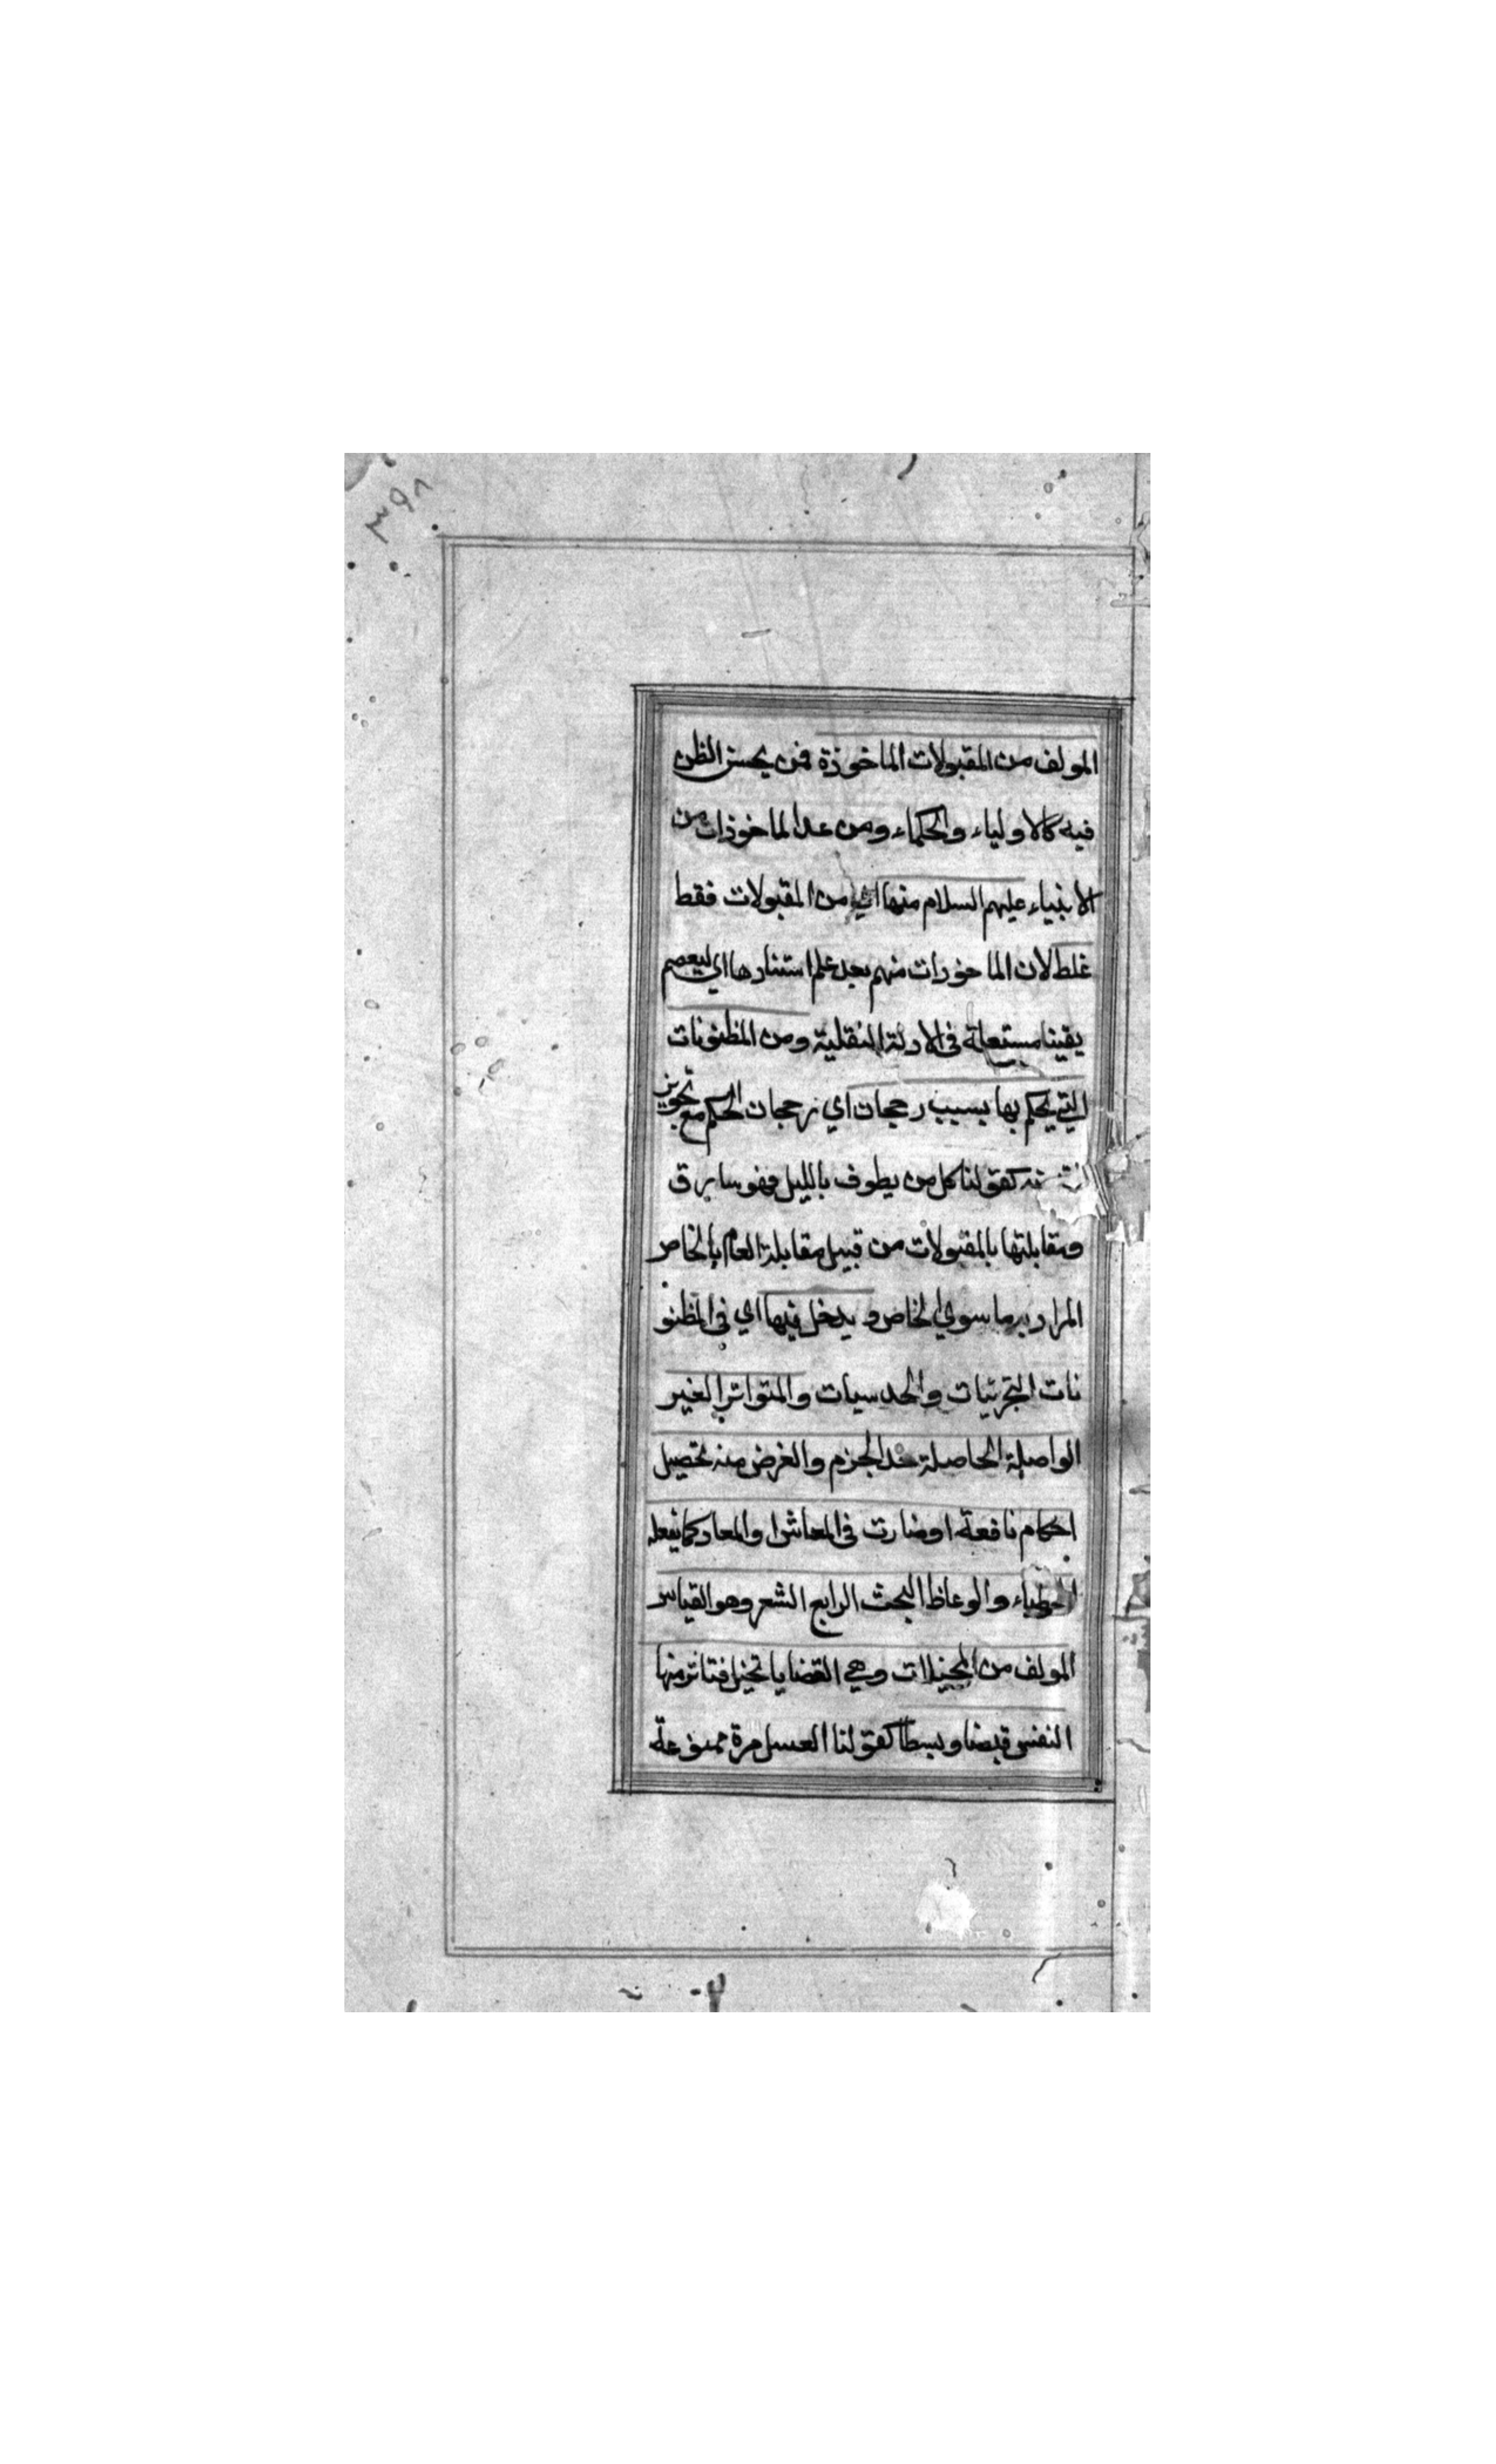 ٣٩٨
المولف من المقبولات الماخوذة فمن يحسن الظن
فيه كالاولياء والحكماء ومن عد الماخوذات من
الانبياء عليهم السلام منها اي من المقبولات فقط
غلط لان الماخوذات منهم بعد علم استنادها اي ليعصم
يقينا مستعملة في الادلة النقلية ومن المظنونات
التي يحكم بها بسبب رجحان اي رجحان الحكم مع تجويز
كقولنا كل من يطوف بالليل فهو سارق
ومقابلتها بالمقبولات من قبيل مقابلة العام بالخاص
المراد به ما سوي الخاص و يدخل فيها اي في المظنو
نات التجربيات والحدسيات والمتواتر الغير
الواصلة الحاصلة حد الجزم والغرض منه تحصيل
احكام نافعة او ضارت في المعاش او المعاد كما يفعله
الخطباء والوعاظ البحث الرابع الشعر وهو القياس
المولف من المخيلات وهي القضايا تخيل فتاثر منها
النفس قبضا وبسطا كقولنا العسل مرة ممنوعة